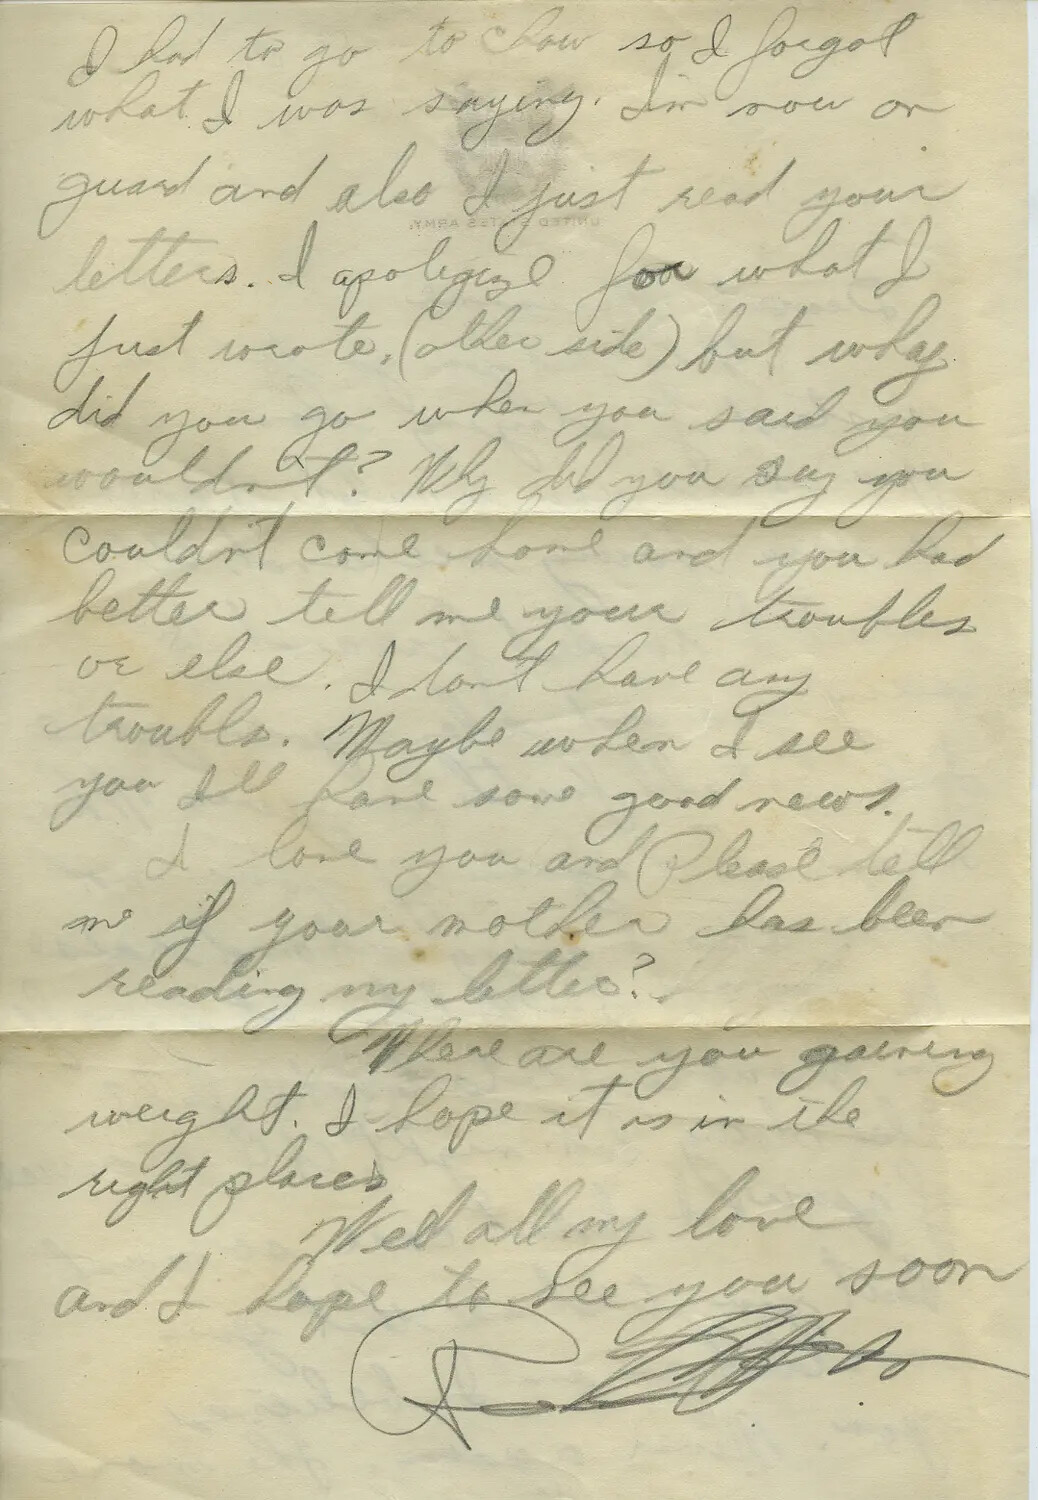 I had to go to chow so I forgot
what I was saying. I'm now on
guard and also I just read your
UNITED STATES ARMY
letters. I apologize for what I
just wrote, (other side) but why
did you go when you said you
wouldn't? Why did you say you
couldn't come home and you had
better tell me your troubles
or else. I don't have any
troubls. Maybe when I see
you I'll have some good news.
I love you and Please tell
me if your mother has been
reading my letter?
Where are you gaining
weight. I hope it is in the
right places
Well all my love
and I hope to see you soon